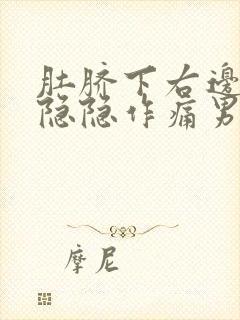 肚脐下右邊
隐隐作痛男
摩尼